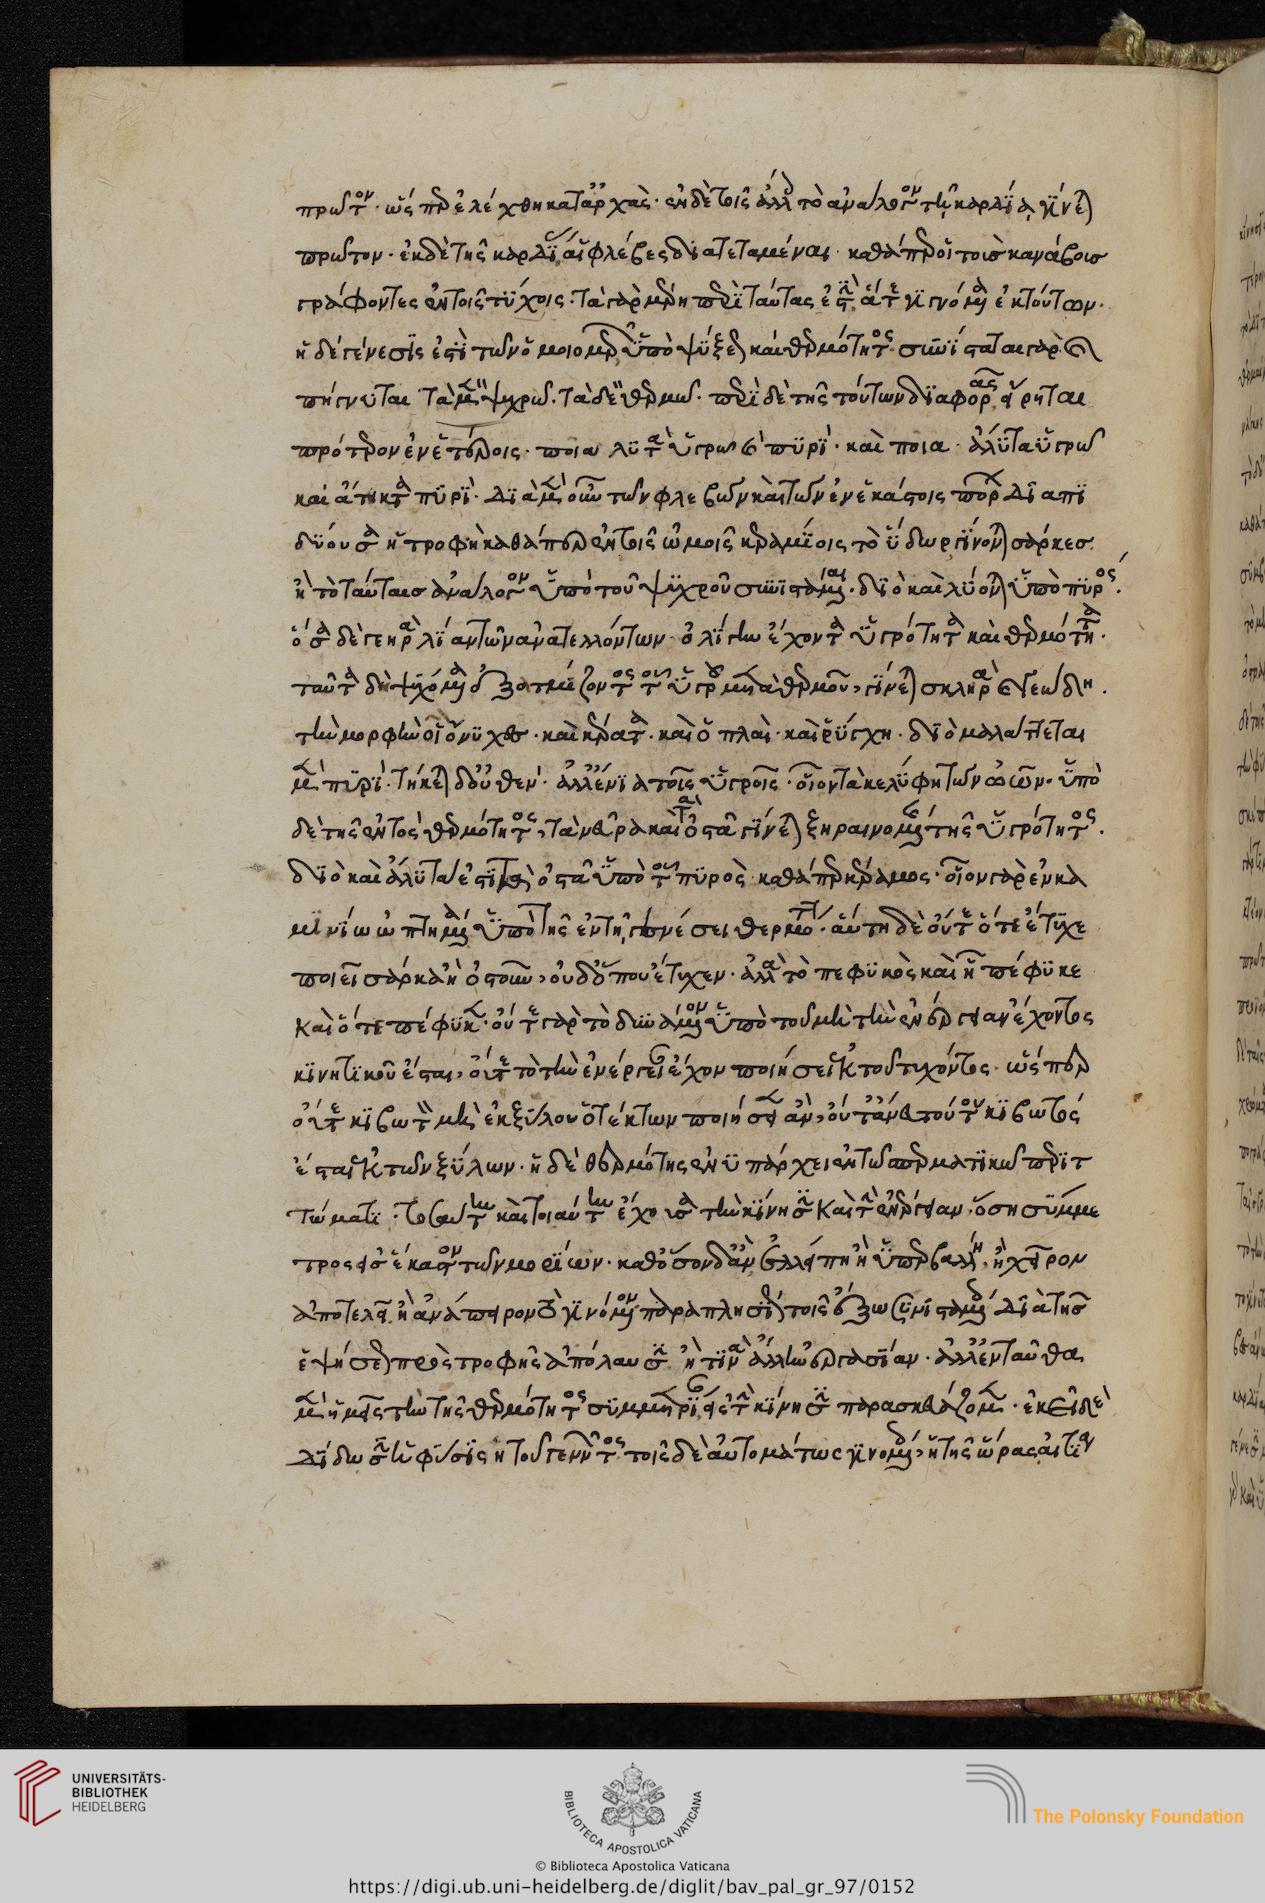 πρῶτον· ὥσπερ ἐλέχθη κατ' ἀρχὰς· ἐν δὲ τοῖς ἄλλοις τὸ ἀνάλογον τῇ καρδίᾳ γίνεται
πρῶτον· ἐκ δὲ τῆς καρδίας αἱ φλέβες διατεταμέναι· καθάπερ οἱ τοὺς κανάβους
γράφοντες ἐν τοῖς τοίχοις· τὰ γὰρ μέρη περὶ ταύτας ἐστὶν ἅτε γινόμενα ἐκ τούτων·
ἡ δὲ γένεσίς ἐστι τῶν ὁμοιομερῶν ὑπὸ ψύξεως καὶ θερμότητος· συνίσταται γὰρ καὶ
πήγνυται τὰ μὲν ψυχρῷ· τὰ δὲ θερμῷ· περὶ δὲ τῆς τούτων διαφορᾶς εἴρηται
πρότερον ἐν ἑτέροις· ποῖα λυτὰ ὑγρῷ καὶ πυρὶ· καὶ ποῖα ἄλυτα ὑγρῷ
καὶ ἄτηκτα πυρὶ· διὰ μὲν οὖν τῶν φλεβῶν καὶ τῶν ἐν ἑκάστοις πόρων διαπι
δύουσα ἡ τροφὴ καθάπερ ἐν τοῖς ὠμοῖς κεραμίοις τὸ ὕδωρ γίνονται σάρκες
ἢ τὸ ταύταις ἀνάλογον ὑπὸ τοῦ ψυχροῦ συνιστάμεναι· διὸ καὶ λύονται ὑπὸ πυρός·
ὅσα δὲ γεηρὰ λίαν τῶν ἀνατελλόντων· ὀλίγην ἔχοντα ὑγρότητα καὶ θερμότητα·
ταῦτα δὲ ψυχόμενα ἐξατμίζοντος τοῦ ὑγροῦ μετὰ θερμοῦ, γίνεται σκληρὰ καὶ γεώδη·
τὴν μορφὴν οἷον ὄνυχες· καὶ κέρατα· καὶ ὁπλαὶ· καὶ ῥύγχη· διὸ μαλάττεται
μὲν πυρὶ· τήκεται δ' οὐθέν· ἀλλ' ἔνια τοῖς ὑγροῖς· οἷον τὰ κελύφη τῶν ὠῶν· ὑπὸ
δὲ τῆς ἐντὸς θερμότητος, τά τε νεῦρα καὶ τὰ ὀστᾶ γίνεται ξηραινομένης τῆς ὑγρότητος·
διὸ καὶ ἄλυτά ἐστι τὰ ὀστᾶ ὑπὸ τοῦ πυρὸς καθάπερ κέραμος· οἷον γὰρ ἐν κα
μίνῳ ὠπτημένα ὑπὸ τῆς ἐν τῇ γενέσει θερμότητος· αὕτη δὲ οὔτε ὅτε ἔτυχε
ποιεῖ σάρκα ἢ ὀστοῦν, οὐδ' ὅπου ἔτυχεν· ἀλλὰ τὸ πεφυκὸς καὶ ᾗ πέφυκε
καὶ ὅτε πέφυκεν· οὔτε γὰρ τὸ δυνάμει ὂν ὑπὸ τοῦ μὴ τὴν ἐνέργειαν ἔχοντος
κινητικοῦ ἔσται, οὔτε τὸ τὴν ἐνέργειαν ἔχον ποιήσει ἐκ τοῦ τυχόντος· ὥσπερ
οὔτε κιβωτὸν μὴ ἐκ ξύλου ὁ τέκτων ποιήσειεν ἂν, οὔτ' ἄνευ τούτου κιβωτὸς
ἔσται ἐκ τῶν ξύλων· ἡ δὲ θερμότης ἐνυπάρχει ἐν τῷ σπερματικῷ περιτ
τώματι· τοσαύτην καὶ τοιαύτην ἔχουσα τὴν κίνησιν καὶ τὴν ἐνέργειαν· ὅση σύμμε
τρος εἰς ἕκαστον τῶν μορίων· καθ' ὅσον δ' ἂν ἐλλείπῃ ἢ ὑπερβάλλῃ, ἢ χεῖρον
ἀποτελεῖ ἢ ἀνάπηρον τὸ γινόμενον παραπλησίως τοῖς ἔξω συνισταμένοις διὰ τῆς
ἑψήσεως πρὸς τροφῆς ἀπόλαυσιν ἢ τινα ἄλλην ἐργασίαν· ἀλλ' ἐνταῦθα
μὲν ἡμεῖς τὴν τῆς θερμότητος συμμετρίαν εἰς τὴν κίνησιν παρασκευάζομεν· ἐκεῖ δὲ
δίδωσιν ἡ φύσις ἡ τοῦ γεννῶντος· τοῖς δὲ αὐτομάτως γινομένοις, ἡ τῆς ὥρας αἰτία
UNIVERSITÄTS-
BIBLIOTHEK
HEIDELBERG
BIBLIOTECA APOSTOLICA VATICANA
The Polonsky Foundation
© Biblioteca Apostolica Vaticana
https://digi.ub.uni-heidelberg.de/diglit/bav_pal_gr_97/0152